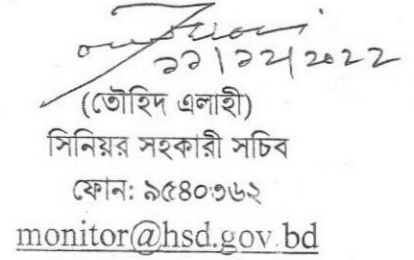 ১১|১২|২০২২
(তৌহিদ এলাহী)
সিনিয়র সহকারী সচিব
ফোন: ৯৫৪০৩৬২
monitor@hsd.gov.bd